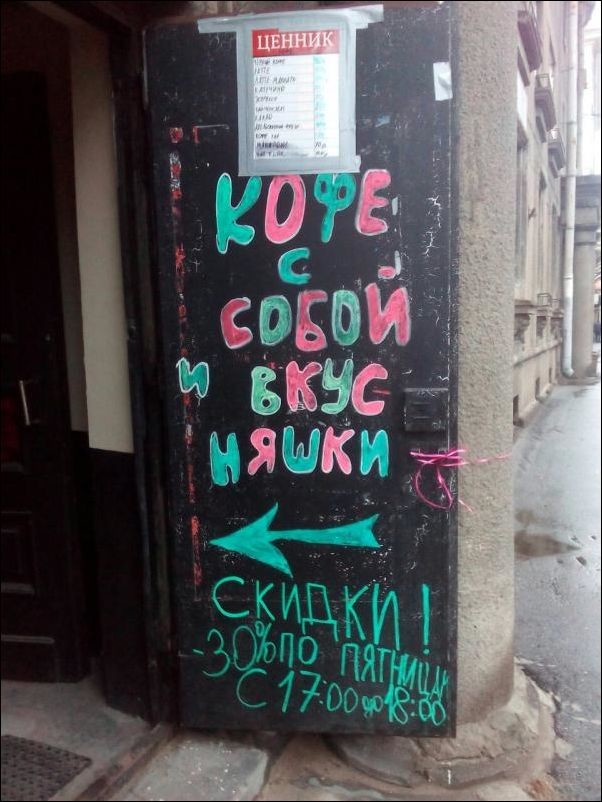 ЦЕННИК
ЛАТТЕ
КАПУЧИНО
КАКАО
КОФЕ
С
СОБОЙ
И ВКУС
НЯШКИ
СКИДКИ!
-30% ПО ПЯТНИЦАМ
С 17:00 до 18:00